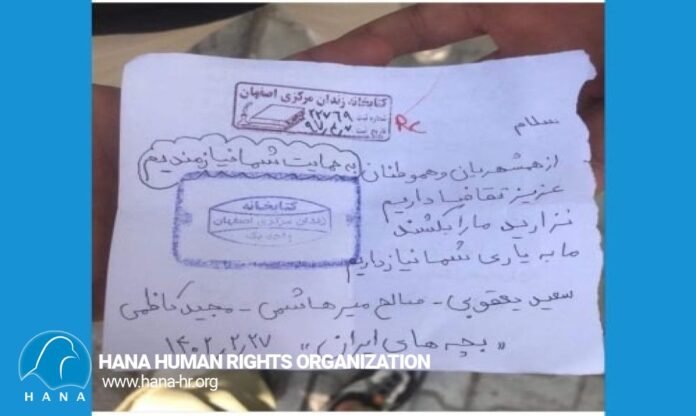 کتابخانه زندان مرکزی اصفهان
شماره ثبت ۲۲۷۶۹
تاریخ ثبت ۹۷٫۴٫۷
RC
سلام
از همشهریان و هموطنان به حمایت شما نیازمندیم
عزیز تقاضا داریم
نزارید ما را بکشند
ما به یاری شما نیاز داریم
کتابخانه
زندان مرکزی اصفهان
واحد یک
سعید یعقوبی - صالح میرهاشمی - مجید کاظمی
«بچه های ایران» ۱۴۰۲٫۲٫۲۷
HANA
HANA HUMAN RIGHTS ORGANIZATION
www.hana-hr.org